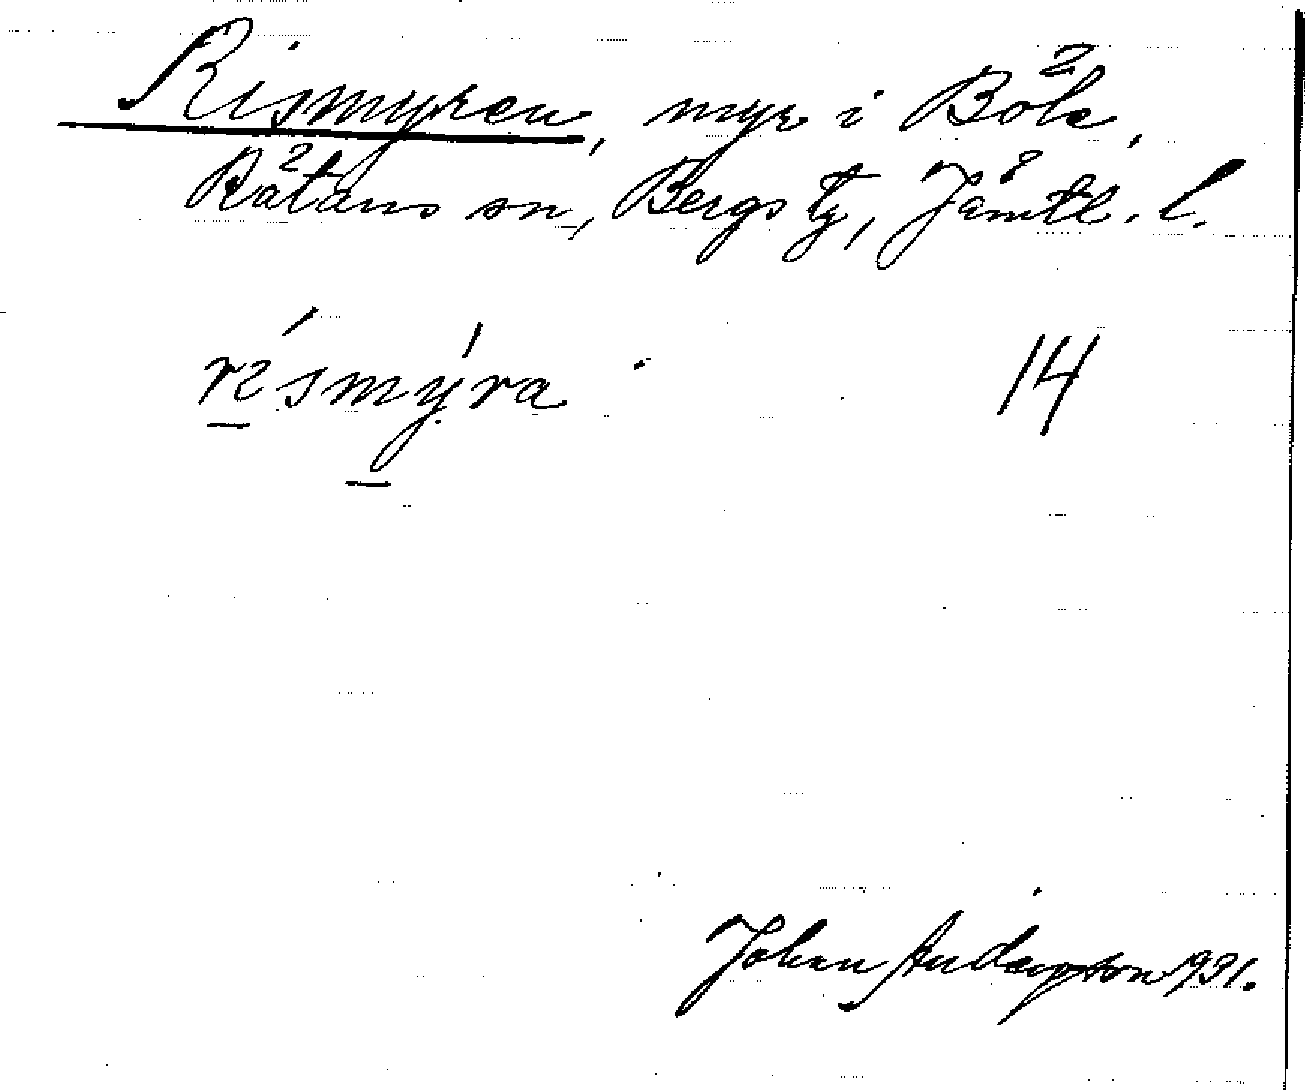 Rismyren, myr i Böle,
Rätans sn, Bergs tg, Jämtl. l.
rísmýra 14
Johan Anderson 1931.